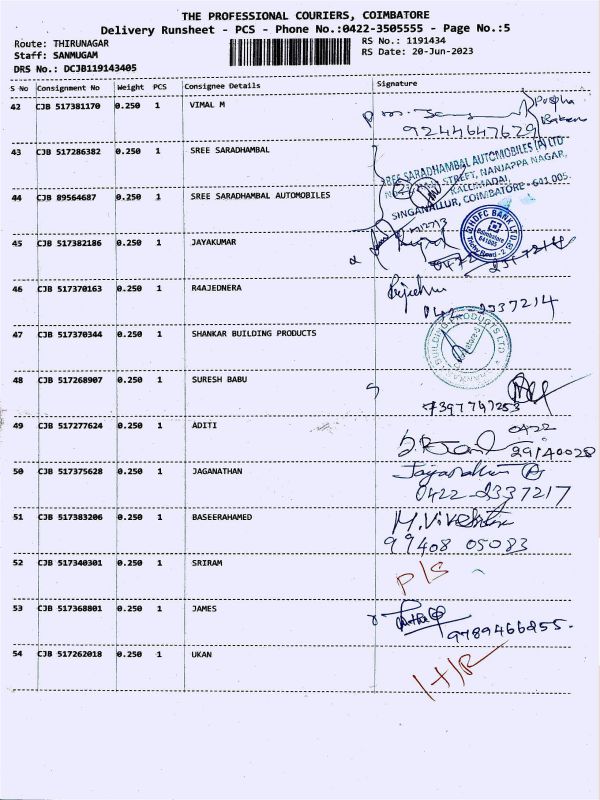 THE PROFESSIONAL COURIERS, COIMBATORE
Delivery Runsheet - PCS - Phone No.:0422-3505555 - Page No.:5
Route: THIRUNAGAR
RS No.: 1191434
Staff: SANMUGAM
RS Date: 20-Jun-2023
DRS No.: DCJB119143405
S No Consignment No Weight PCS Consignee Details Signature
42 CJB 517381170 0.250 1 VIMAL M
9244647629
43 CJB 517286382 0.250 1 SREE SARADHAMBAL
SREE SARADHAMBAL AUTOMOBILES (P) LTD
STREET, NANJAPPA NAGAR,
KALLIMADAI,
SINGANALLUR, COIMBATORE - 641 005.
44 CJB 89564687 0.250 1 SREE SARADHAMBAL AUTOMOBILES
HDFC BANK LTD
Coimbatore
641005
45 CJB 517382186 0.250 1 JAYAKUMAR
0422 2337214
46 CJB 517370163 0.250 1 R4AJEDNERA
0422 - 2337214
47 CJB 517370344 0.250 1 SHANKAR BUILDING PRODUCTS
BUILDING PRODUCTS LTD
48 CJB 517268907 0.250 1 SURESH BABU
7397747253
49 CJB 517277624 0.250 1 ADITI
0422
29140028
50 CJB 517375628 0.250 1 JAGANATHAN
0422-2337217
51 CJB 517383206 0.250 1 BASEERAHAMED
99408 05083
52 CJB 517340301 0.250 1 SRIRAM
P/S
53 CJB 517368801 0.250 1 JAMES
9789466255.
54 CJB 517262018 0.250 1 UKAN